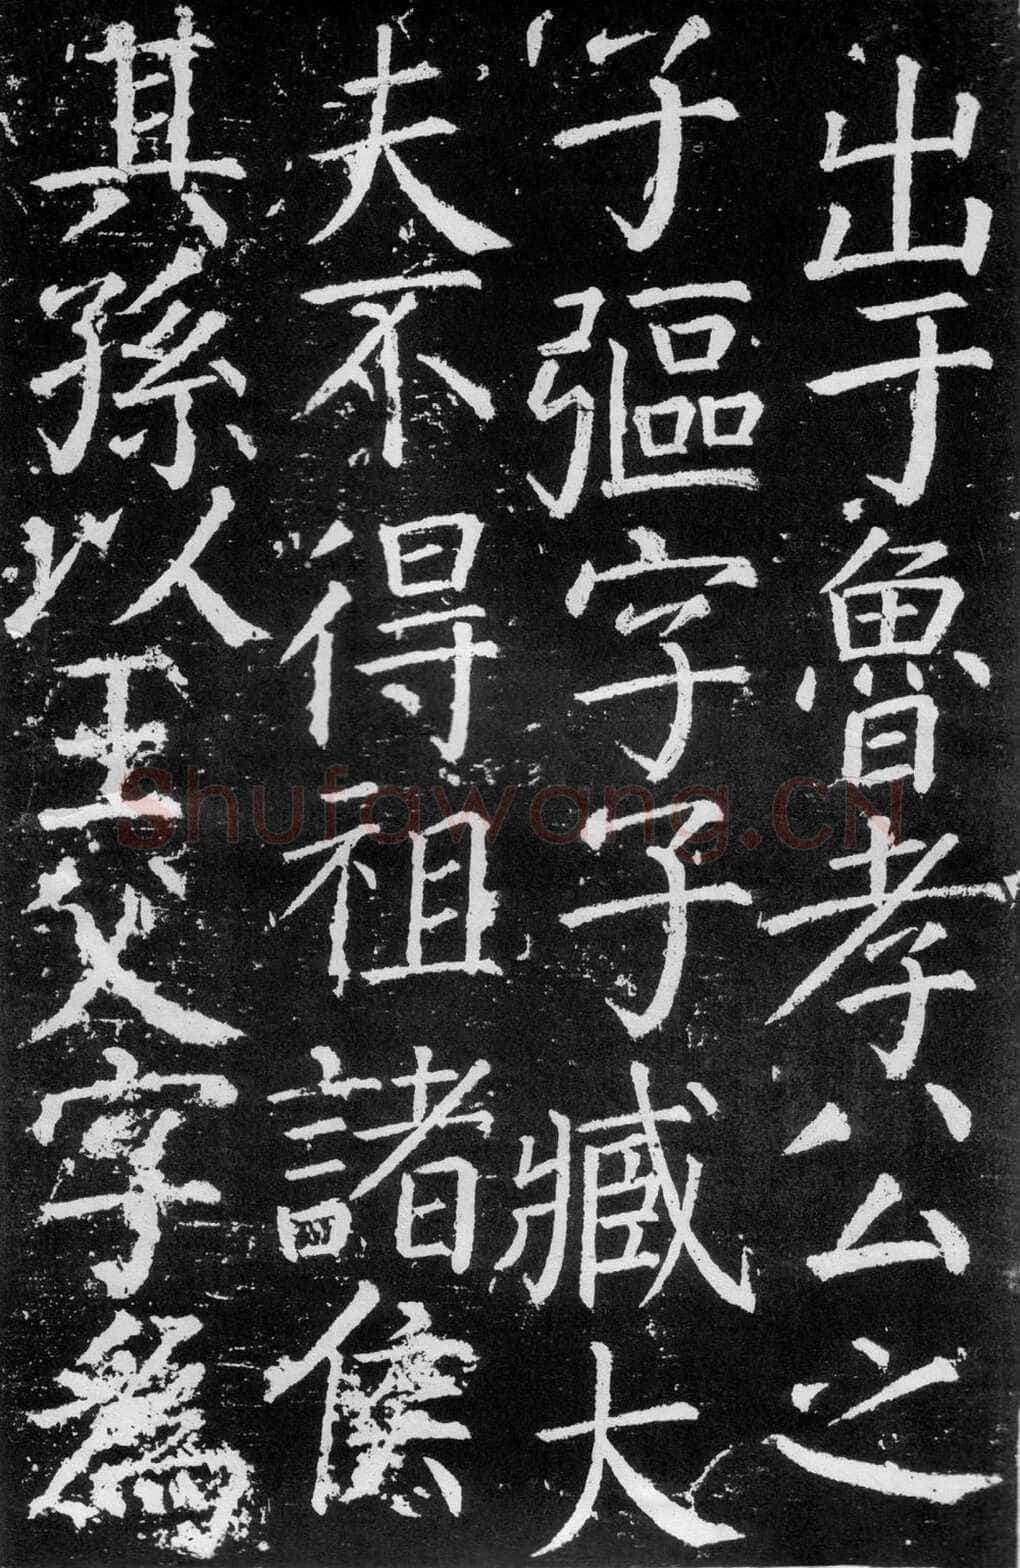 出于魯孝公之
子彄字子臧大
夫不得祖諸侯
其孫以王父字爲
Shufawang.CN